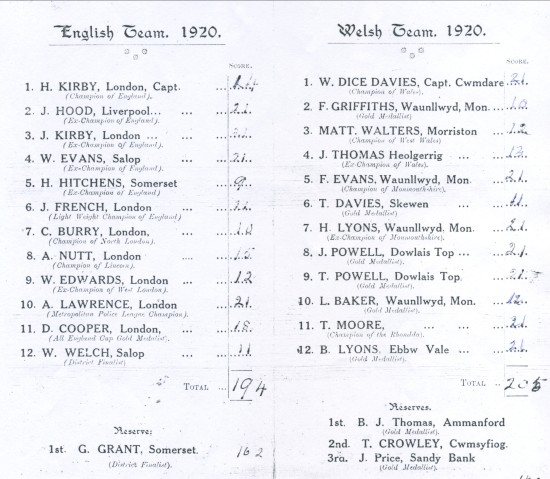 English Team. 1920.
SCORE.
1. H. KIRBY, London, Capt. ... 14
(Champion of England).
2. J. HOOD, Liverpool... ... 21.
(Ex-Champion of England).
3. J. KIRBY, London ... ... 21.
(Ex-Champion of England).
4. W. EVANS, Salop ... ... 21.
(Ex-Champion of England)
5. H. HITCHENS, Somerset ... 9.
(Ex-Champion of England)
6. J. FRENCH, London ... 21.
(Light Weight Champion of England)
7. C. BURRY, London, ... 10
(Champion of North London).
8. A. NUTT, London .... ... 15
(Champion of Linesea).
9. W. EDWARDS, London ... 12
(Ex-Champion of West London).
10. A. LAWRENCE, London ... 21.
(Metropolitan Police League Champion).
11. D. COOPER, London, ... 18.
(All England Cup Gold Medalist).
12. W. WELCH, Salop ... ... 11
(District Finalist)
TOTAL ... 194
Reserve:
1st. G. GRANT, Somerset. 162
(District Finalist).
Welsh Team. 1920.
SCORE.
1. W. DICE DAVIES, Capt. Cwmdare 21.
(Champion of Wales).
2. F. GRIFFITHS, Waunllwyd, Mon. ... 10
(Gold Medallist)
3. MATT. WALTERS, Morriston ... 12
(Champion of West Wales)
4. J. THOMAS Heolgerrig ... ... 13.
(Ex-Champion of Wales).
5. F. EVANS, Waunllwyd, Mon. ... 21.
(Champion of Monmouthshire).
6. T. DAVIES, Skewen ...
(Gold Medallist)
7. H. LYONS, Waunllwyd, Mon. ... 21.
(Ex-Champion of Monmouthshire).
8. J. POWELL, Dowlais Top ... ... 21.
(Gold Medallist).
9. T. POWELL, Dowlais Top. ... 21.
(Gold Medallist).
10. L. BAKER, Waunllwyd, Mon. ... 12.
(Gold Medallist).
11. T. MOORE, ... ... ... 21.
(Champion of the Rhondda).
12. B. LYONS, Ebbw Vale ... ... 21.
(Gold Medallist).
TOTAL ... 205
Reserves.
1st. B. J. Thomas, Ammanford
(Gold Medallist).
2nd. T. CROWLEY, Cwmsyfiog.
3rd. J. Price, Sandy Bank
(Gold Medallist).